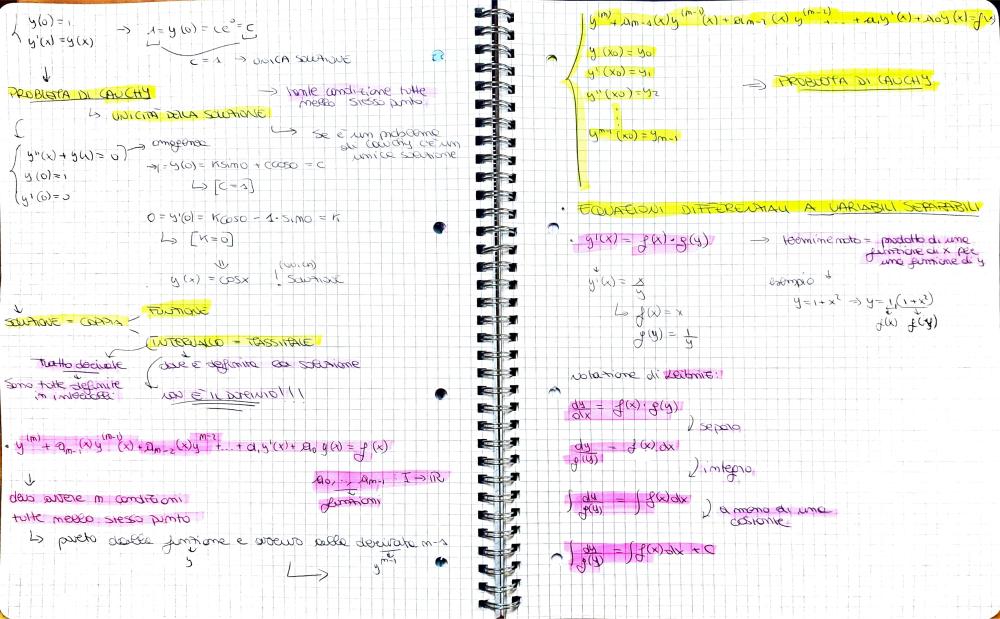 y(0) = 1
y'(x) = y(x)
→ 1 = y(0) = ce⁰ = c
c = 1 → UNICA SOLUZIONE
PROBLEMA DI CAUCHY
→ tante condizione tutte
nello stesso punto
↳ UNICITÀ DELLA SOLUZIONE
↳ Se è un problema
di Cauchy c'è un
unica soluzione
y''(x) + y(x) = 0 → omogenea
y(0) = 1
y'(0) = 0
→ 1 = y(0) = K sin0 + C cos0 = C
↳ [C = 1]
0 = y'(0) = K cos0 - 1 · sin0 = K
↳ [K = 0]
⇓
y(x) = cosx ! (UNICA) SOLUZIONE
SOLUZIONE = COPPIA
FUNZIONE
INTERVALLO - MASSIMALE
dove è definita la soluzione
NON È IL DOMINIO!!!
sono tutte definite
in intervalli
• y⁽ⁿ⁾ + aₙ₋₁(x) y⁽ⁿ⁻¹⁾(x) + aₙ₋₂(x) yⁿ⁻² + ... + a₁ y'(x) + a₀ y(x) = f(x)
a₀, ..., aₙ₋₁ : I → ℝ
funzioni
devo avere n condizioni
tutte nello stesso punto
↳ parto dalla funzione e arrivo alla derivata n-1
y
yⁿ⁻¹
y⁽ⁿ⁾ + aₙ₋₁(x) y⁽ⁿ⁻¹⁾(x) + aₙ₋₂(x) y⁽ⁿ⁻²⁾ ... + a₁ y'(x) + a₀ y(x) = f(x)
y(x₀) = y₀
y'(x₀) = y₁
y''(x₀) = y₂
⋮
yⁿ⁻¹(x₀) = yₙ₋₁
→ PROBLEMA DI CAUCHY
• EQUAZIONI DIFFERENZIALI A VARIABILI SEPARABILI
• y'(x) = f(x) · g(y)
→ termine noto = prodotto di una
funzione di x per
una funzione di y
y'(x) = x/y
↳ f(x) = x
g(y) = 1/y
esempio
y = 1 + x² → y = 1 (1 + x²)
f(x) g(y)
notazione di Leibniz:
dy/dx = f(x) · g(y)
↓ separo
dy/g(y) = f(x) dx
↓ integro
∫ dy/g(y) = ∫ f(x) dx
↓ a meno di una
costante
∫ dy/g(y) = ∫ f(x) dx + C